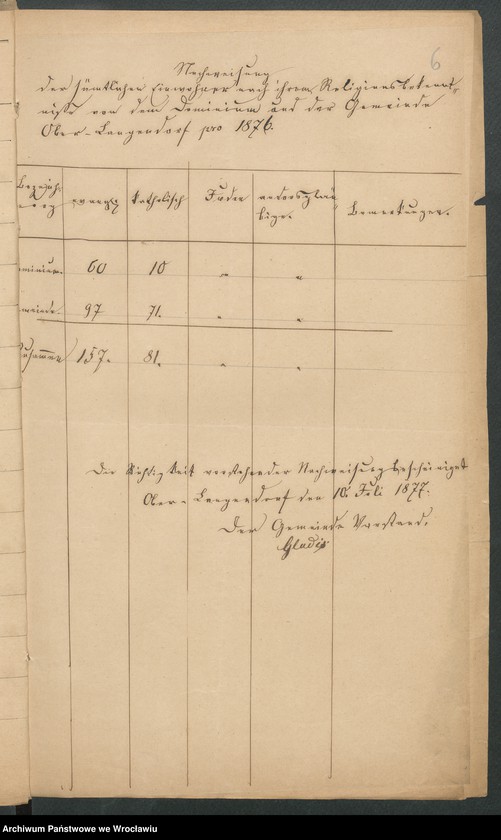 6
Nachweisung
der sämtlichen Einwohner nach ihrem Religionsbekennt-
nisse von dem Dominium und der Gemeinde
Ober-Langendorf pro 1876.
Bezeich-
nung evangl. katholisch Juden andersgläu-
bige. Bemerkungen.
minium. 60 10 " "
meinde. 97 71. " "
Zusammen 157. 81. " "
Die Richtigkeit vorstehender Nachweisung bescheiniget
Ober-Langendorf den 10. Juli 1877.
Der Gemeinde Vorstand.
Gladis
Archiwum Państwowe we Wrocławiu